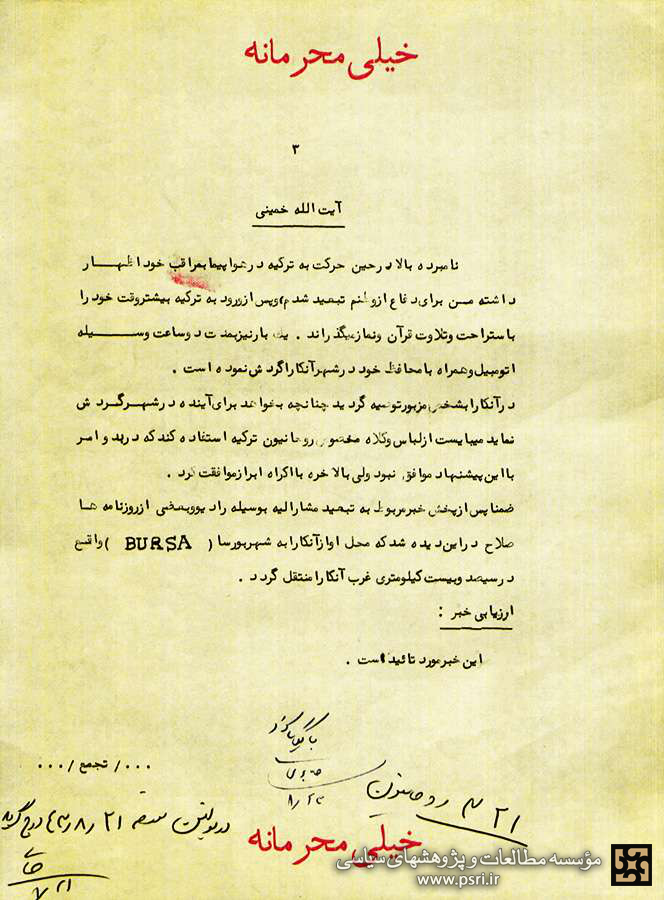 خیلی محرمانه
۳
آیت الله خمینی
نامبرده بالا در حین حرکت به ترکیه در هواپیما بمراقب خود اظهار
داشته من برای دفاع از وطنم تبعید شدم، و پس از ورود به ترکیه بیشتر وقت خود را
با ستراحت و تلاوت قرآن و نماز میگذراند . یک بار نیز بمدت دو ساعت وسیله
اتومبیل و همراه با محافظ خود در شهر آنکارا گردش نموده است .
در آنکارا بشخص مزبور توصیه گردید چنانچه بخواهد برای آینده در شهر گردش
نماید میبایست از لباس و کلاه مخصوص روحانیون ترکیه استفاده کند که در بدو امر
با این پیشنهاد موافق نبود ولی بالاخره با اکراه ابراز موافقت کرد .
ضمنا پس از پخش خبر مربوط به تبعید مشارالیه بوسیله رادیو و بعضی از روزنامه ها
صلاح در این دیده شد که محل او از آنکارا به شهر بورسا ( BURSA ) واقع
در سیصد و بیست کیلومتری غرب آنکارا منتقل گردد .
ارزیابی خبر :
این خبر مورد تائید است .
۰۰۰/ تجمع /۰۰۰
۸/۲۳
۲۱ روحانیون
در بولتن ۲۱/۸/۴۳ درج گردید
خیلی محرمانه
مؤسسه مطالعات و پژوهشهای سیاسی
www.psri.ir